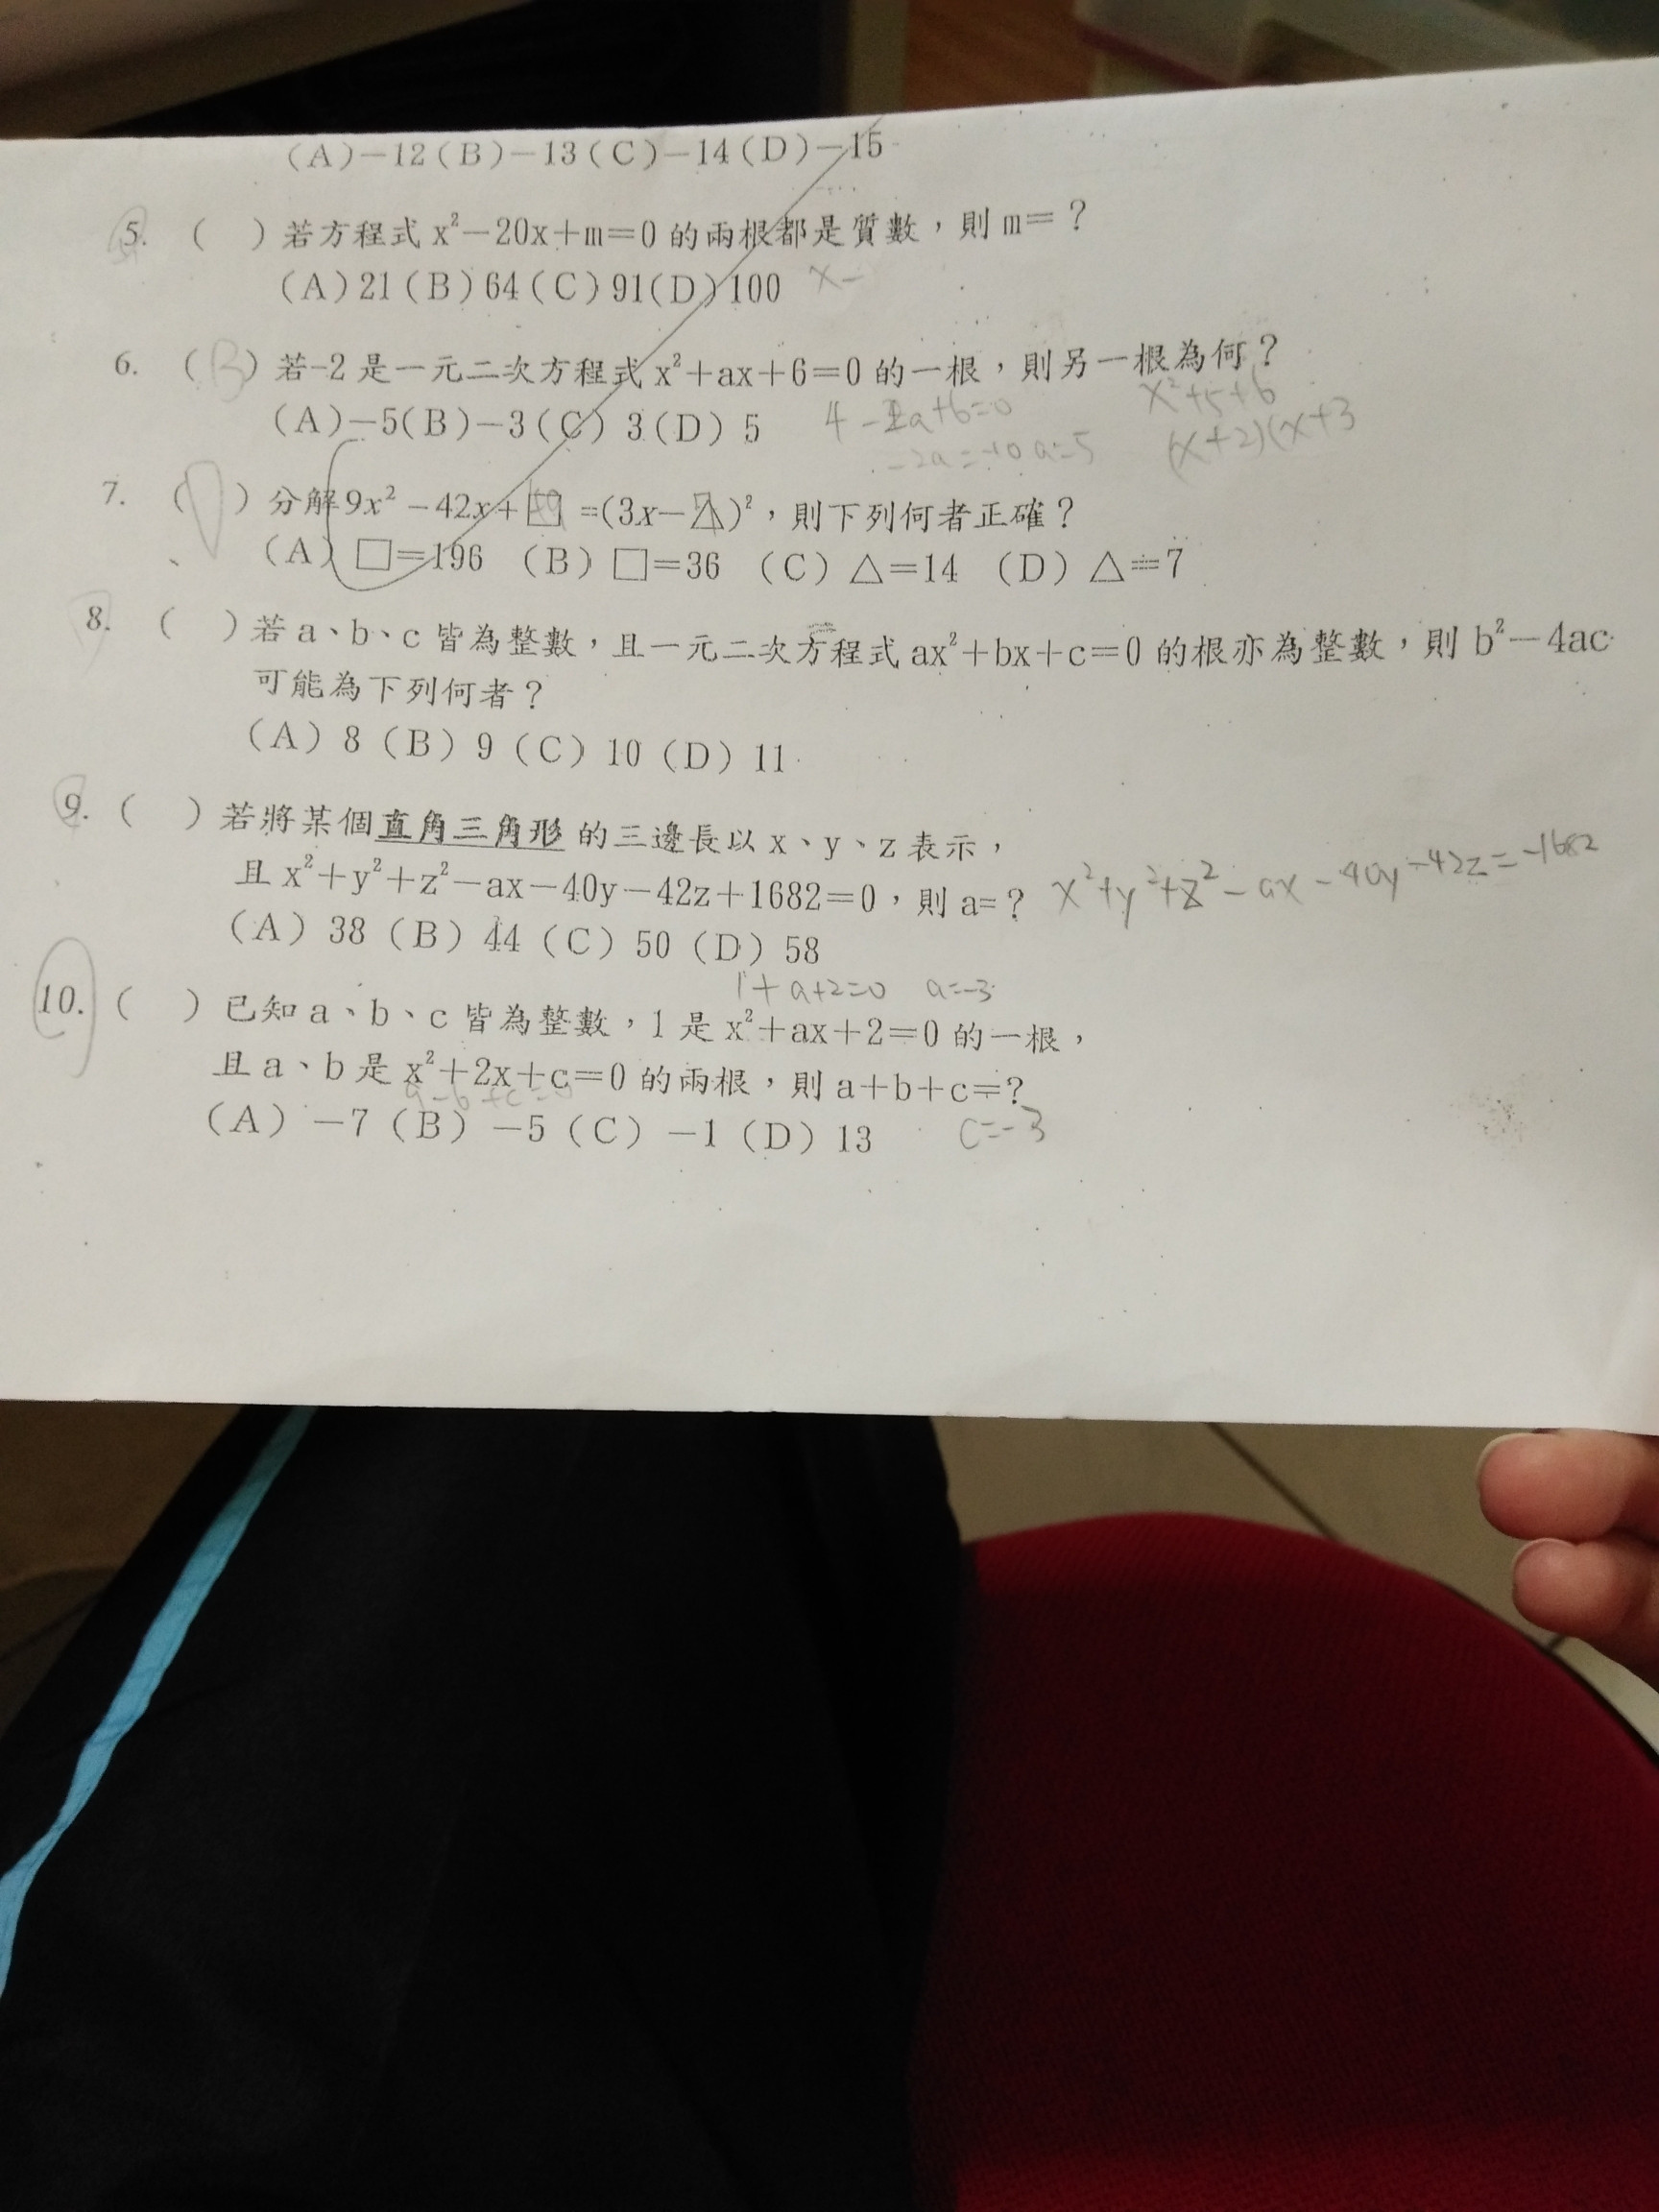 (A)－12(B)－13(C)－14(D)－15
5. (　) 若方程式 x²－20x＋m＝0 的兩根都是質數，則 m＝？
(A)21(B)64(C)91(D)100 x－
6. (B) 若-2 是一元二次方程式 x²＋ax＋6＝0 的一根，則另一根為何？
(A)－5(B)－3(C) 3(D) 5
4－2a+6=0
－2a=－10 a=5
x²+5+6
(x+2)(x+3
7. (D) 分解9x²－42x＋□ =(3x－△)²，則下列何者正確？
49 7
(A) □＝196 (B) □＝36 (C) △＝14 (D) △＝7
8. (　) 若 a、b、c 皆為整數，且一元二次方程式 ax²＋bx＋c＝0 的根亦為整數，則 b²－4ac
可能為下列何者？
(A) 8 (B) 9 (C) 10 (D) 11
9. (　) 若將某個直角三角形 的三邊長以 x、y、z 表示，
且 x²＋y²＋z²－ax－40y－42z＋1682＝0，則 a=？ x²+y²+z²－ax－40y－42z=－1682
(A) 38 (B) 44 (C) 50 (D) 58
1+a+2=0 a=-3
10. (　) 已知 a、b、c 皆為整數，1 是 x²＋ax＋2＝0 的一根，
且 a、b 是 x²＋2x＋c＝0 的兩根，則 a＋b＋c＝？
9－6+c=0
(A) －7 (B) －5 (C) －1 (D) 13 c=-3